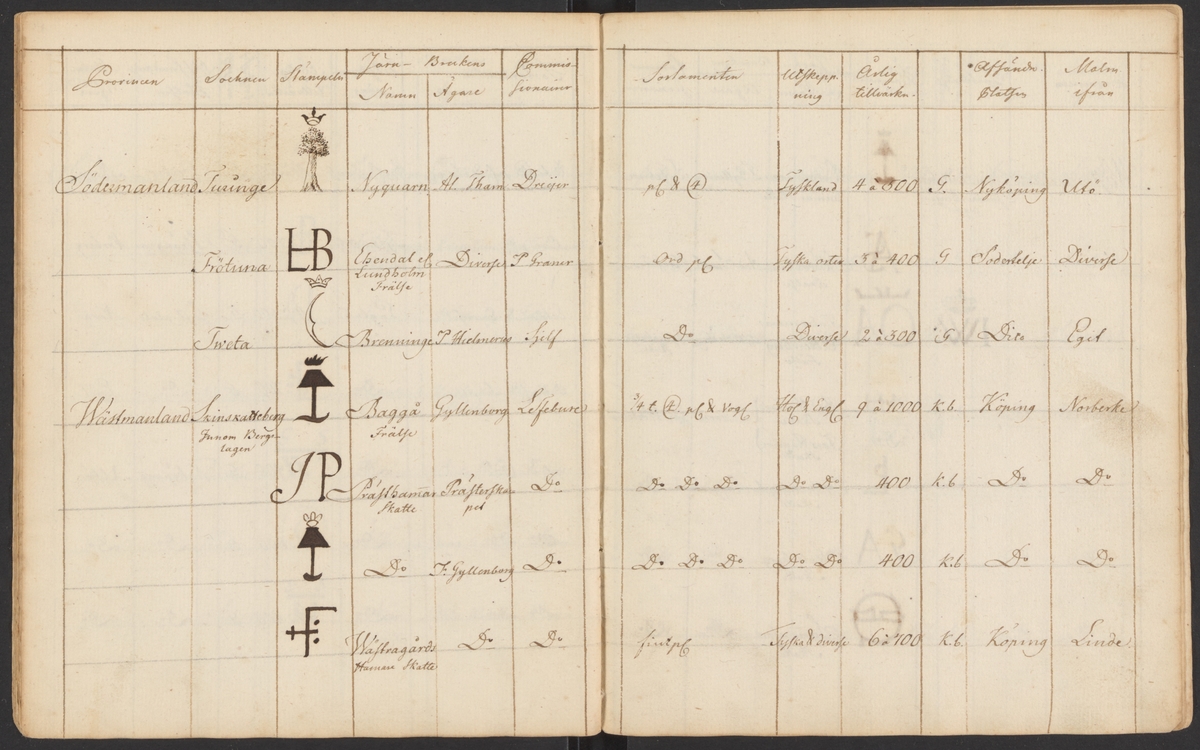 Provincen Sochnen Stämpeln Järn-Brukens Namn Ägare Commissionairer Sortamenten Utskeppning Årlig tillvärkn. Afsändn. Platsen Malm ifrån
Södermanland Tuunge Nyquarn Al. Tham Dreijer Tyskland 4 à 500 G. Nyköping Utö
Frötuna HB Ehendal el Lundholm Frälse Diverse P Graner Ord Tyska orter 3 à 400 G Södertelje Diverse
Tweta Brenninge P Hielmerus Sjelf Do Diverse 2 à 300 G Dito Egit
Wästmanland Skinskatteberg Innom Bergslagen Baggå Frälse Gyllenborg Lefebure 9 à 1000 K.b. Köping Norberke
IP Prästhamar Skatte Prästerskapet Do Do Do Do Do Do 400 K.b Do Do
Do F. Gyllenborg Do Do Do Do Do Do 400 K.b Do Do
Wästragårds Hamare Skatte Do Do Tyska & diverse 6 à 700 K.b. Köping Linde